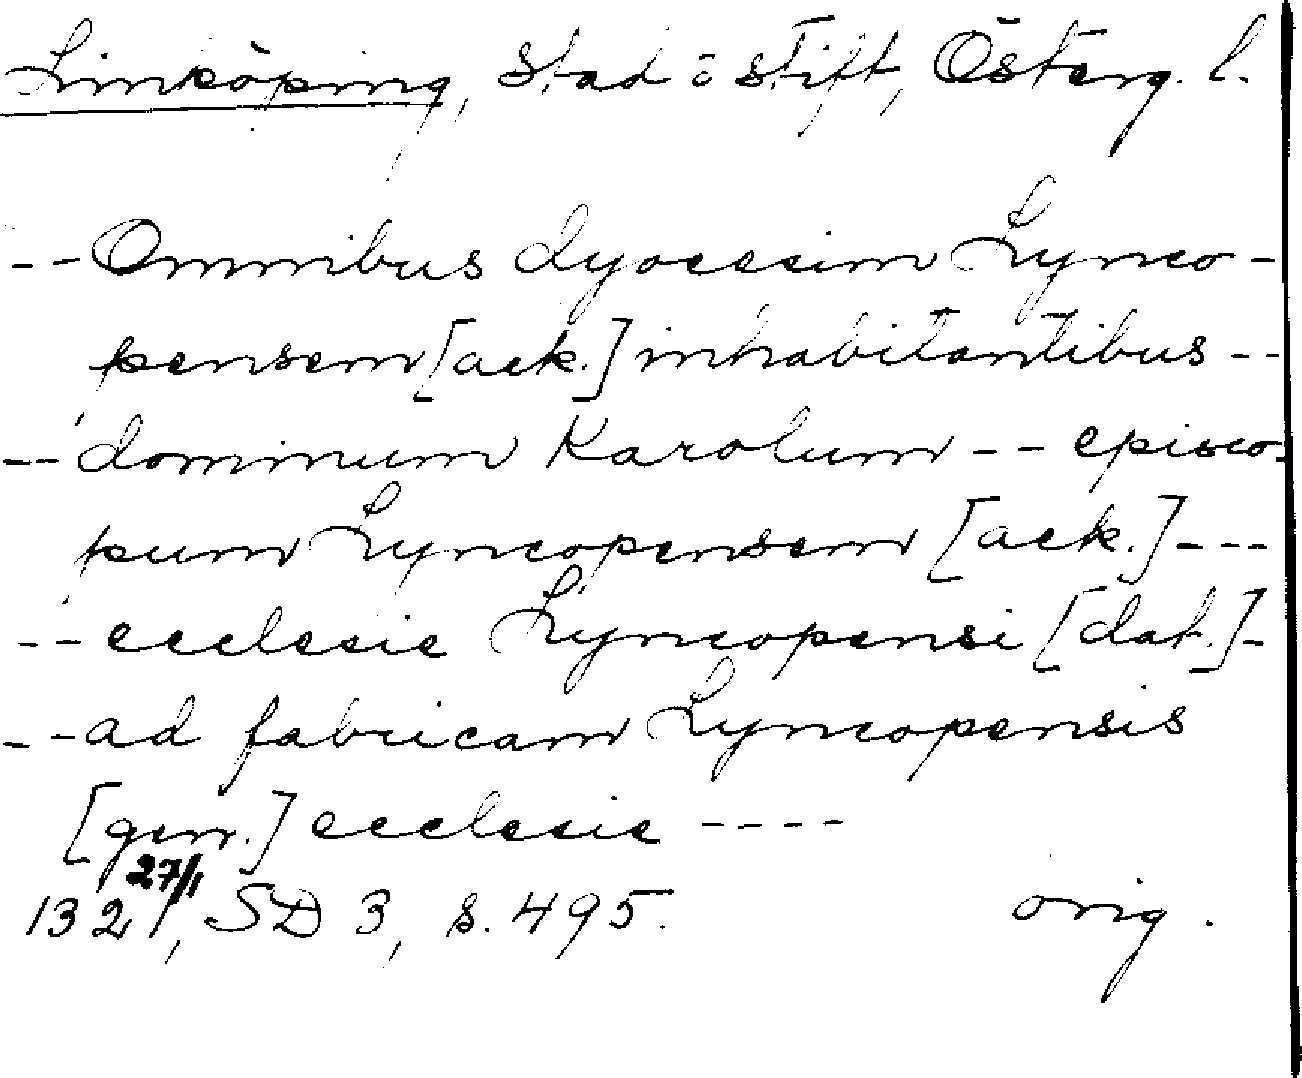 Linköping, stad o stift, Österg. l.
-- Omnibus dyocesim Lynco-
pensem [ack.] inhabitantibus --
-- dominum Karolum -- episco-
pum Lyncopensem [ack.] ---
-- ecclesie Lyncopensi [dat.] -
-- ad fabricam Lyncopensis
[gen.] ecclesie ----
27/1
1321, SD 3, s. 495. orig.